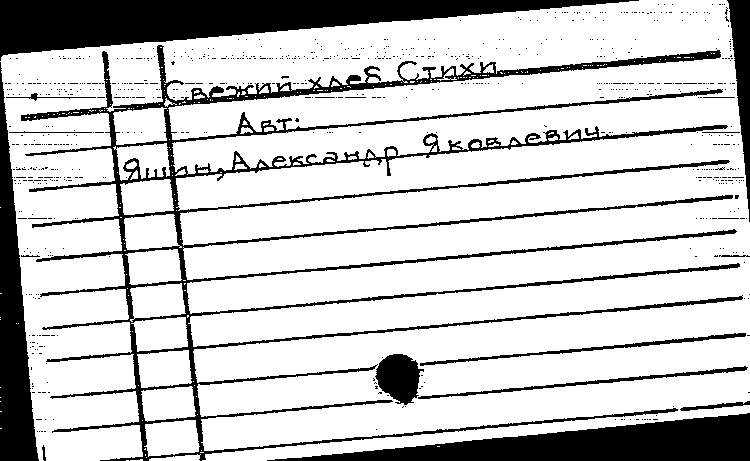 Свежий хлеб Стихи
Авт:
Яшин, Александр Яковлевич